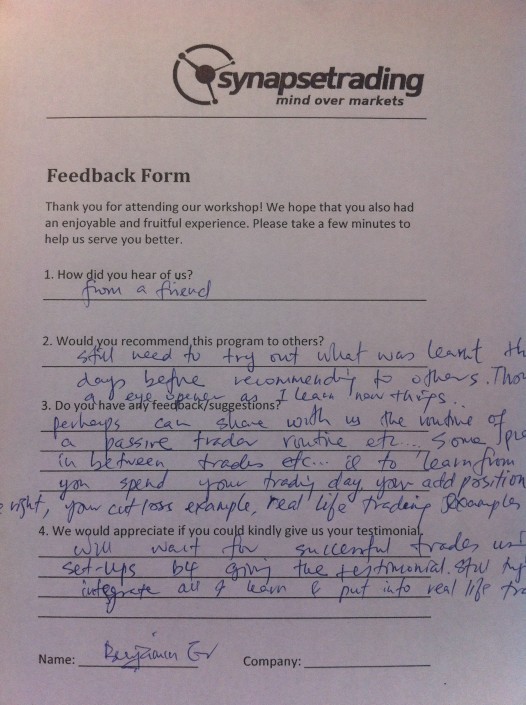 synapsetrading
mind over markets
Feedback Form
Thank you for attending our workshop! We hope that you also had
an enjoyable and fruitful experience. Please take a few minutes to
help us serve you better.
1. How did you hear of us?
from a friend
2. Would you recommend this program to others?
still need to try out what was learnt th
days before recommending to others. Thou
a eye opener as I learn new things.
3. Do you have any feedback/suggestions?
perhaps can share with us the routine of
a passive trader routine etc... Some
in between trades etc... to learn from
you spend your trading day, your add position
right, your cut loss example, real life trading examples
4. We would appreciate if you could kindly give us your testimonial
Will wait for successful trades usi
set-ups b4 giving the testimonial. Still
integrate all I learn & put into real life tra
Name: Benjamin Er Company: